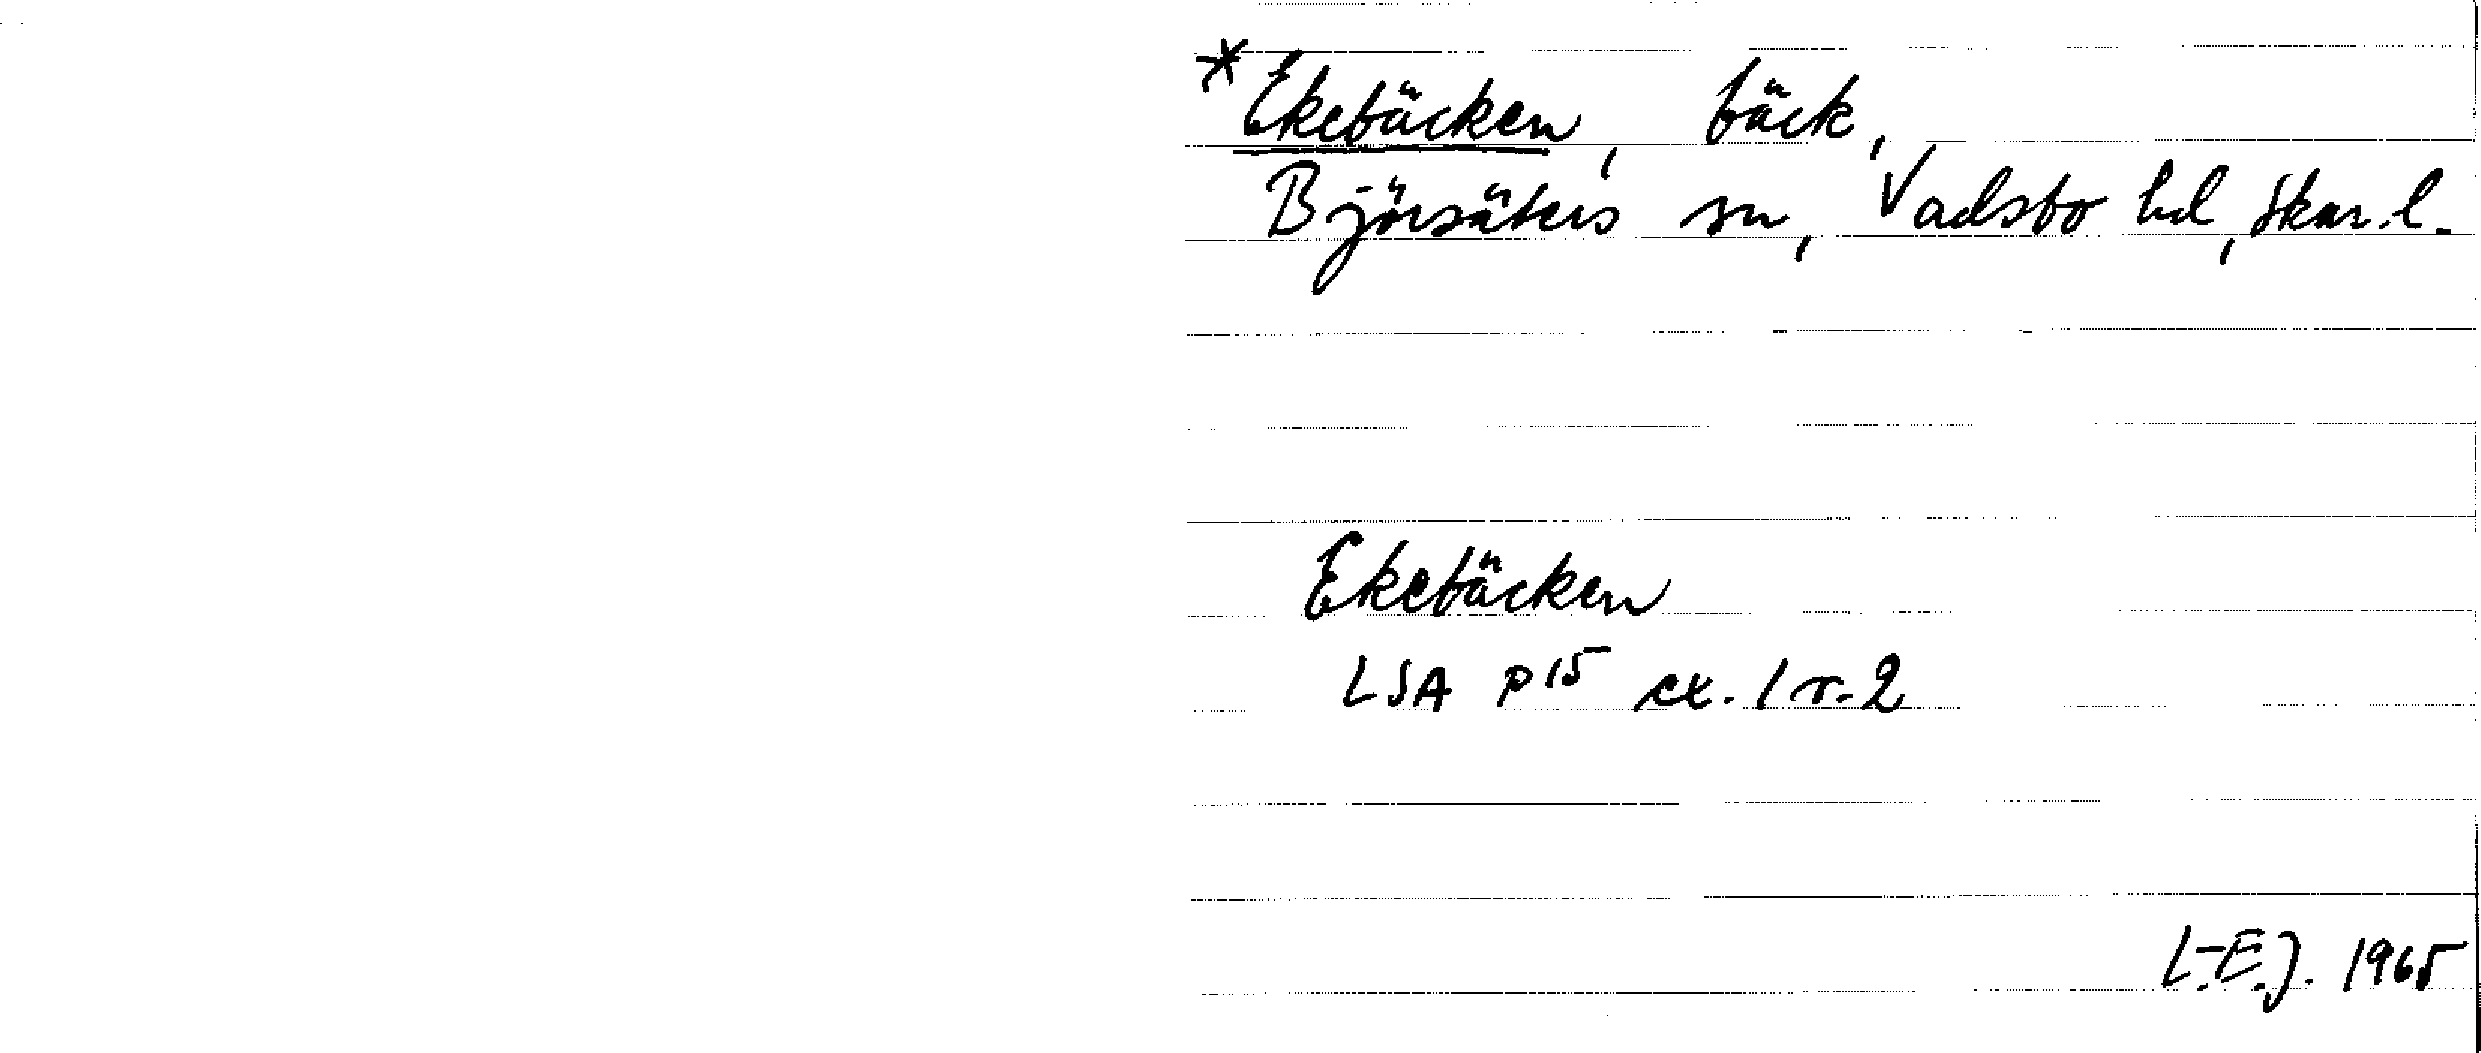 *Ekebäcken, bäck,
Björsäters sn, Vadsbo hd, Skar. l.
Ekebäcken
LSA P15 ex. 1 r. 2
L.-E. J. 1965